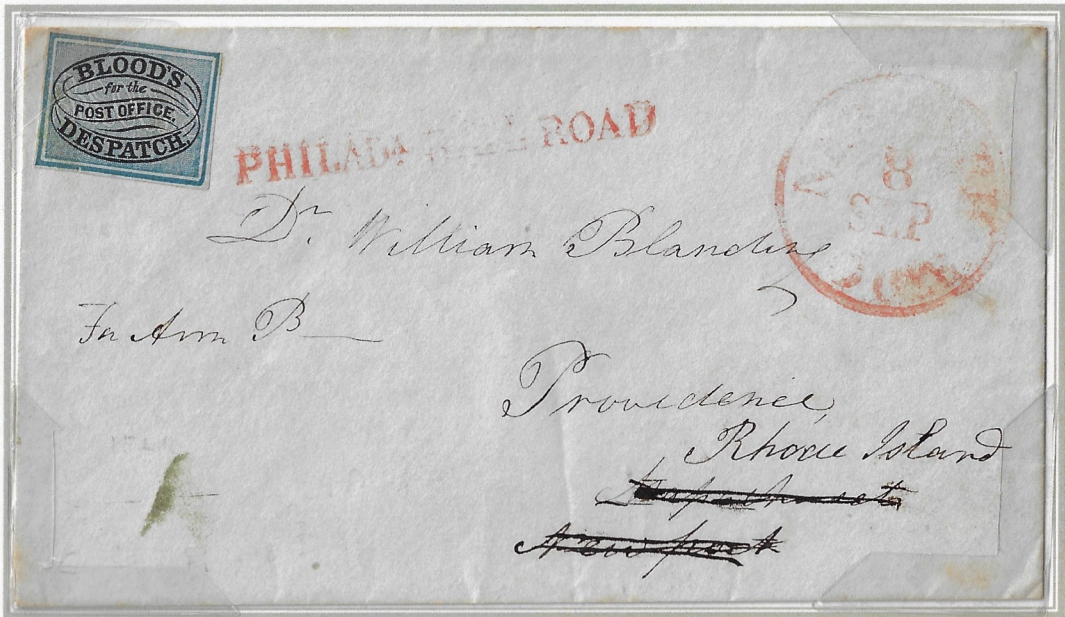 BLOOD'S
for the
POST OFFICE.
DESPATCH.
PHILADA RAIL ROAD
8
SEP
Dr. William Blanding
For Ann B—
Providence,
Rhode Island
Newport